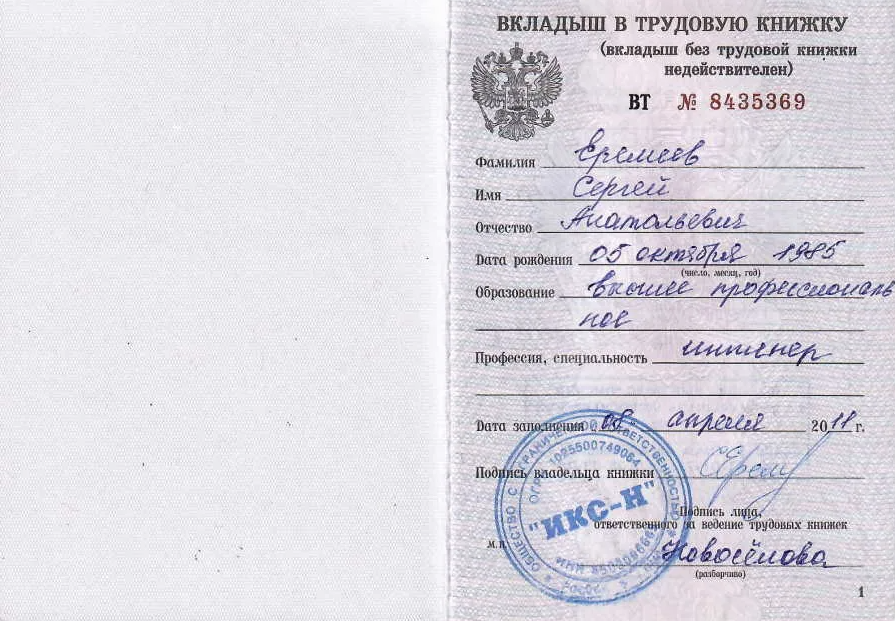 ВКЛАДЫШ В ТРУДОВУЮ КНИЖКУ
(вкладыш без трудовой книжки
недействителен)
ВТ № 8435369
Фамилия Еремеев
Имя Сергей
Отчество Анатольевич
Дата рождения 05 октября 1985
(число, месяц, год)
Образование высшее профессиональ
ное
Профессия, специальность инженер
Дата заполнения „08" апреля 2011 г.
Подпись владельца книжки СЕрем
Подпись лица,
ответственного за ведение трудовых книжек
М.П. Новосёлова
(разборчиво)
ОБЩЕСТВО С ОГРАНИЧЕННОЙ ОТВЕТСТВЕННОСТЬЮ
ОГРН 1025500749064
"ИКС-Н"
ИНН
1